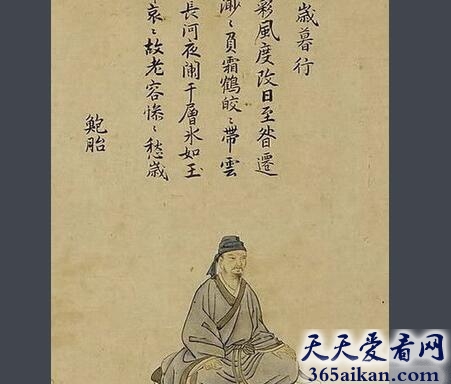 歲暮行
彩風度改日至晷遷
渺〻負霜鶴皎〻帶雲
長河夜闌干層氷如玉
哀〻故老容慘〻愁歲
鮑
天天爱看网
365aikan.com